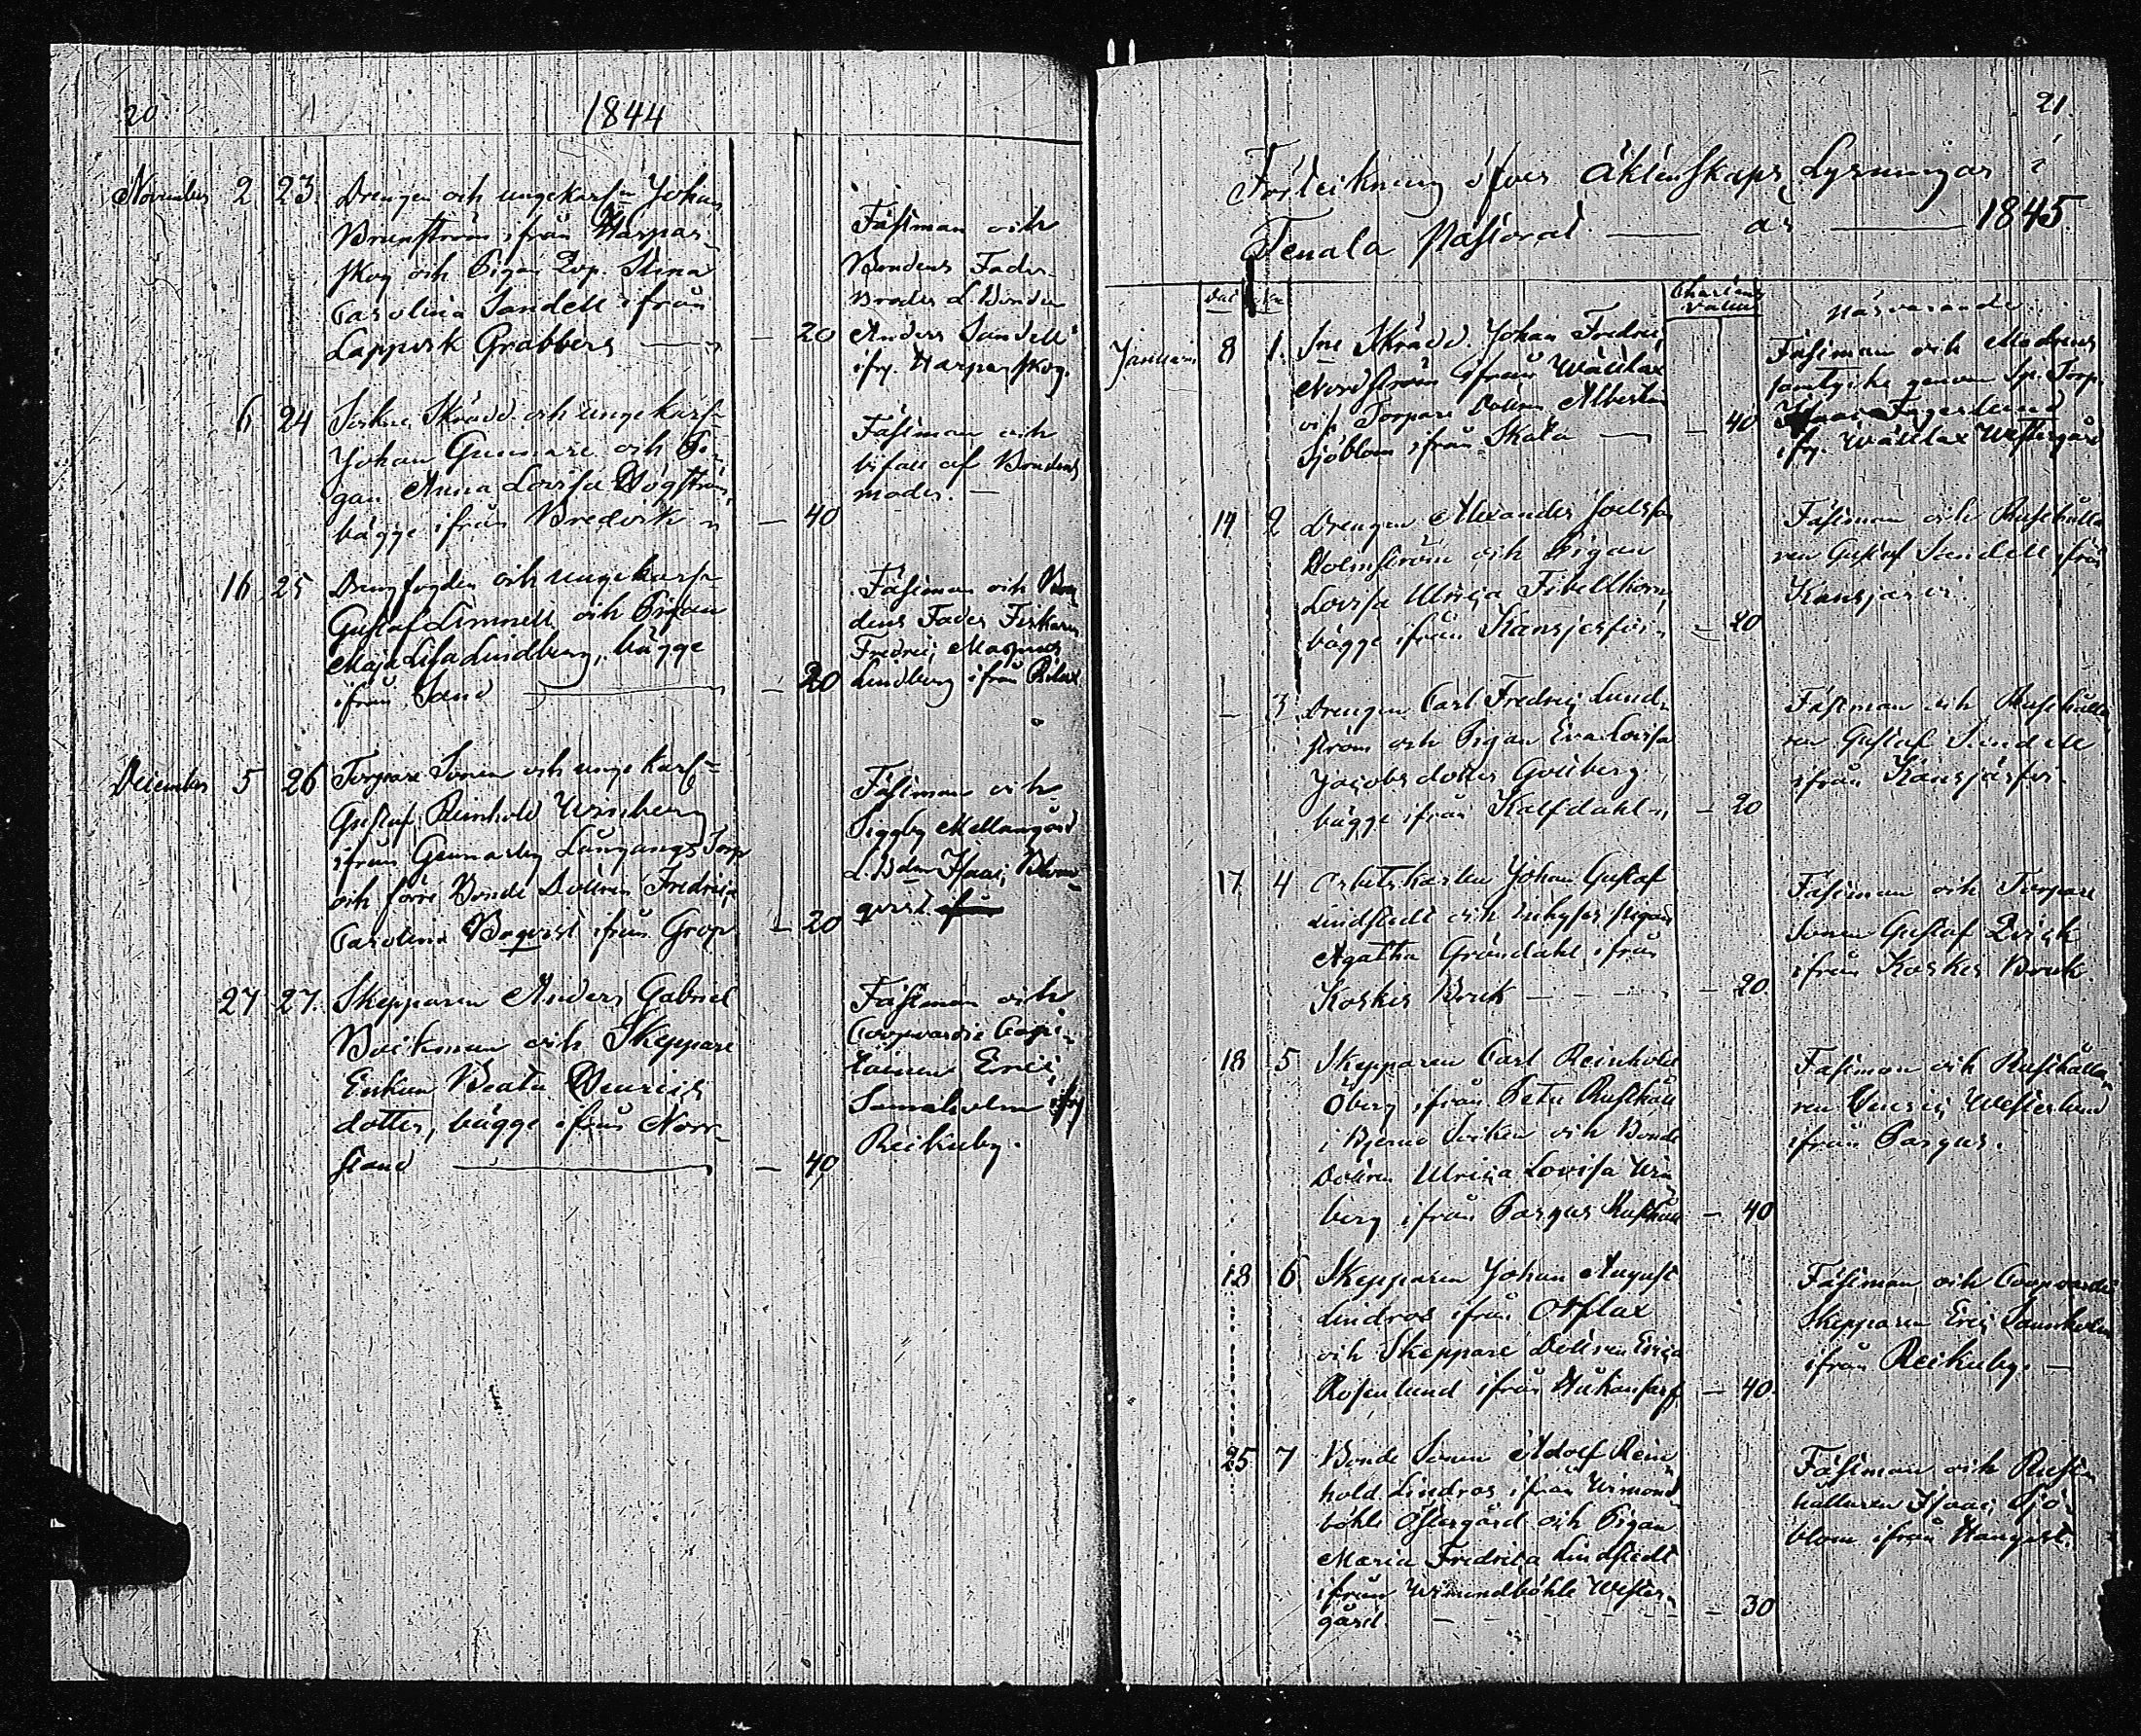 20.
1844
November 2. 23. Drengen och ungekarln Johan
Brunström ifrån Harpar-
skog och Pigan Dop. Stina
Carolina Sandell ifrån
Lappvik Grabbers — 20
Fästman och
Brudens Fader
Broder L. Bonden
Anders Sandell
ifrn. Harparskog.
6. 24 Sockne Skrädd. och ungekarln
Johan Gunnare och Pi-
gan Anna Lovisa Högström,
bägge ifrån Bredvik — 40
Fästman och
bifall af Brudens
moder. —
16. 25 Drengfogden och ungekarln
Gustaf Limnell och Pigan
Maja Lisa Lindberg, bägge
ifrån Sand — 20
Fästman och Bru-
dens Fader Fiskaren
Fredric Magnus
Lindberg ifrån Rilax
December 5 26 Torpare Sonen och ungekarln
Gustaf Reinhold Winberg
ifrån Gunnarsby Långängs Torp
och förre Bonde Dottren Fredrica
Carolina ifrån Grop — 20
Fästman och
Siggby Mellangård
L. Bden Isaac Blom-
qvist
27 27. Skepparen Anders Gabriel
Böckman och Skeppare
Enkan Beata Henrics
dotter, bägge ifrån Norr-
stand — 40
Fästman och
Coopvardie Capi-
tainen Eric
Sannholm ifrn
Reikuby.
21.
Förteikning öfver Äktenskaps Lysningar i
Tenala Pastorat — år — 1845.
Charta
valuta
närvarande
Januari 8 1. Sne Skrädd. Johan Fredric
Nordström ifrån Wättlax
och Torpare Dottren Albertina
Sjöblom ifrån Skata — 40
Fästman och Modrens
samtycke genom Torp.
Isaac Fagerlund
ifrn. Wättlax Westergård
14 2 Drengen Alexander Joelsson
Holmström och Pigan
Lovisa Ulrica Fibellhorn,
bägge ifrån Kansjerfvi — 20
Fästman och Rusthålla-
ren Gustaf Sandell ifrån
Kansjärvi.
— 3. Drengen Carl Fredric Lund-
ström och Pigan Eva Lovisa
Jacobsdotter Gottberg
bägge ifrån Kalfdahl — 20
Fästman och Rusthålla-
ren Gustaf Sandell
ifrån Kansjärfvi.
17. 4 Arbetskarlen Johan Gustaf
Lindstedt och Inhyses Pigan
Agatha Gröndahl, ifrån
Koskis Bruk — 20.
Fästman och Torpare
Sonen Gustaf Qvick
ifrån Koskis Bruk.
18 5 Skepparen Carl Reinhold
Öberg ifrån Rusthåll
i Bjerno Socken och Bonde
Dottren Ulrica Lovisa Win-
berg ifrån Pargas Rusthåll — 40
Fästman och Rusthålla-
ren Henric Westerlund
ifrån Pargas.
18 6 Skepparen Johan August
Lindros ifrån Olslax
och Skeppare Dottren Erica
Rosenlund ifrån — 40.
Fästman och Coopvardie
Skepparen Eric Sannholm
ifrån Reikuby. —
25 7 Bonde Sonen Adolf Rein-
hold Lindros ifrån Wimond-
böhle Östergård och Pigan
Maria Fredrica Lindstedt
ifrån Wimundböhle Wester-
gård. — 30
Fästman och Rust-
hållaren Isaac Sjö-
blom ifrån Hangist.